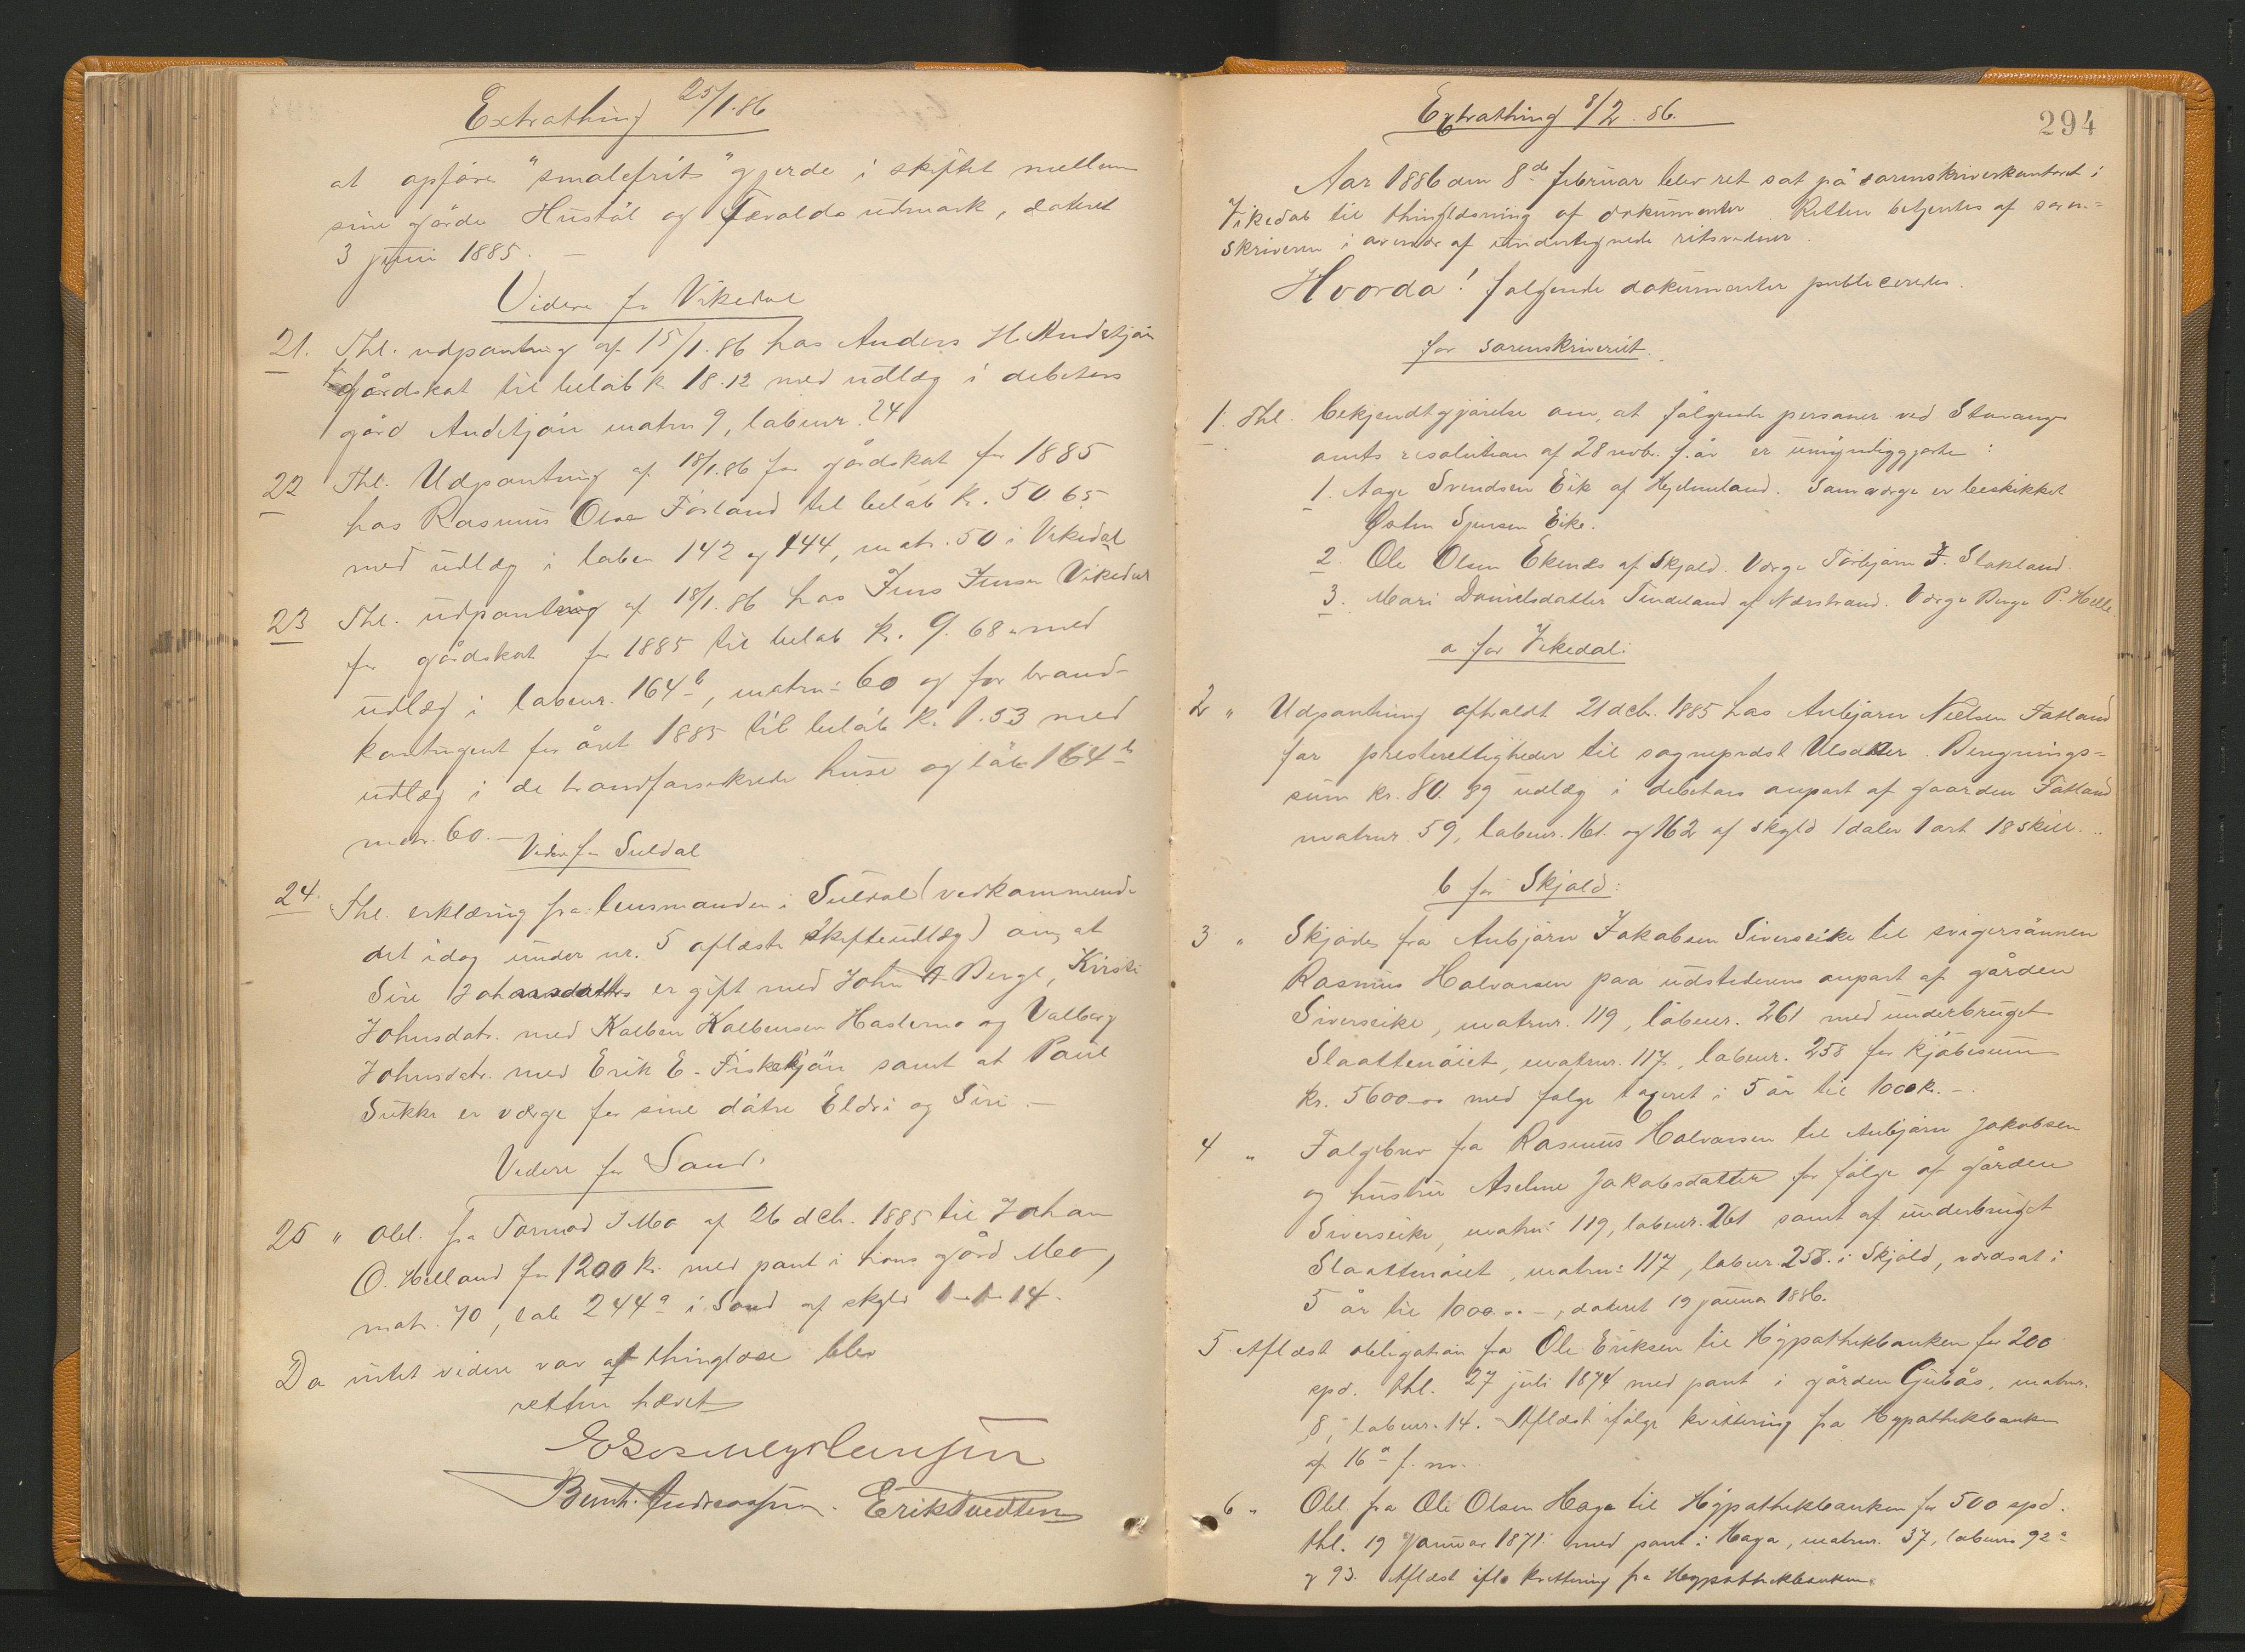 Extrathing 25/1. 86
at opføre "smalefrit" gjerde i skiftet mellem
sine gårde Hustøl og udmark, dateret
3 juni 1885. –
Videre for Vikedal
21. Thl. udpantning af 15/1. 86 hos Anders H.
for gårdskat til beløb k. 18.12 med udlæg i debitors
gård matrn 9, løbenr. 24
22 Thl. Udpantning af 18/1.86 for gårdskat for 1885
hos Rasmus Olsen Førland til beløb k. 50 65
med udlæg i løben 142 og 144, matr. 50 i Vikedal
23 Thl. udpantning af 18/1. 86 hos Jens Jensen Vikedal
for gårdskat for 1885 til beløb k. 9. 68 med
udlæg i løbenr. 164b, matrn: 60 og for brand-
kontingent for året 1885 til beløb k. 1.53 med
udlæg i de brandforsikrede huse og løb 164b
matr. 60. –
Videre for Suldal
24. Thl. erklæring fra lensmanden i Suldal (vedkommende
det idag under nr. 5 oplæste skifteudlæg) om, at
Siri Johnsdatter er gift med John A Berge, Kirsti
Johnsdatr. med Kolben Kolbensen og Valborg
Johnsdatr. med Erik E. Fisketjøn samt at Paul
Sukke er værge for sine døtre Eldri og Siri. –
Videre for Sand.
25 " Obl. fra Tormod T Mo af 26 dcb. 1885 til Johan
O. Helland for 1200 k. med pant i hans gård Mo,
matr. 70, løb 244a i Sand af skyld 1–1–14.
Da intet videre var at thinglæse blev
retten hævet
Bernt. Andreassen. Erik Tvedten
Extrathing 8/2. 86.
294
Aar 1886 den 8de februar blev ret sat på sorenskriverkontoret i
Vikedal til thinglæsning af dokumenter. Retten betjentes af soren-
skriveren i overvær af undertegnede retsvidner.
Hvorda! følgende dokumenter publiceredes.
for sorenskriveriet.
1. Thl. bekjendtgjørelse om, at følgende personer ved Stavanger
amts resolution af 28 novbr. f. år er umyndiggjorte:
1. Aage Svendsen Eik af Hjelmeland. Samværge er beskikket
Østen Sjursen Eike.
2. Ole Olsen Ekenes af Skjold. Værge Torbjørn J. Stakland.
3. Mari Danielsdatter Tindeland af Nærstrand. Værge Berge P. Helle.
a for Vikedal:
2 " Udpantning afholdt 21 dcb. 1885 hos Anbjørn Nielsen Fatland
for presterettigheder til sogneprest . Beregnings-
sum kr. 80. 89 udlæg i debitors anpart af gaarden Fatland
matrnr 59, løbenr. 161. og 162 af skyld 1 daler 1 ort 18 skill. ..
b for Skjold:
3 " Skjøde fra Anbjørn Jakobsen Siverseike til svigersønnen
Rasmus Halvorsen paa udstederens anpart af gården
Siverseike, matrnr. 119, løbenr. 261 med underbruget
Slaattenøiet, matrnr. 117, løbenr. 258 for kjøbesum
kr. 5600 – med følge taxeret i 5 år til 1000 k. –
4 " Følgebrev fra Rasmus Halvorsen til Anbjørn Jakobsen
og hustru Aselene Jakobsdatter for følge af gården
Siverseike, matrn: 119, løbenr. 261 samt af underbruget
Slaattenøiet, matrn: 117, løbnr. 258. i Skjold, værdsat i
5 år til 1000. – , dateret 19 januar 1886.
5 Aflæst obligation fra Ole Eriksen til Hypothekbanken for 200
spd. thl. 27 juli 1874 med pant i gården , matrnr.
8, løbenr. 14. Aflæst ifølge kvittering fra Hypothekbanken
af 16 f. m.
6 " Obl. fra Ole Olsen Haga til Hypothekbanken for 500 spd.
thl. 19 januar 1871. med pant i Haga, matrnr. 37, løbenr 92a
og 93. Aflæst ifle kvittering fra Hypothekbanken.